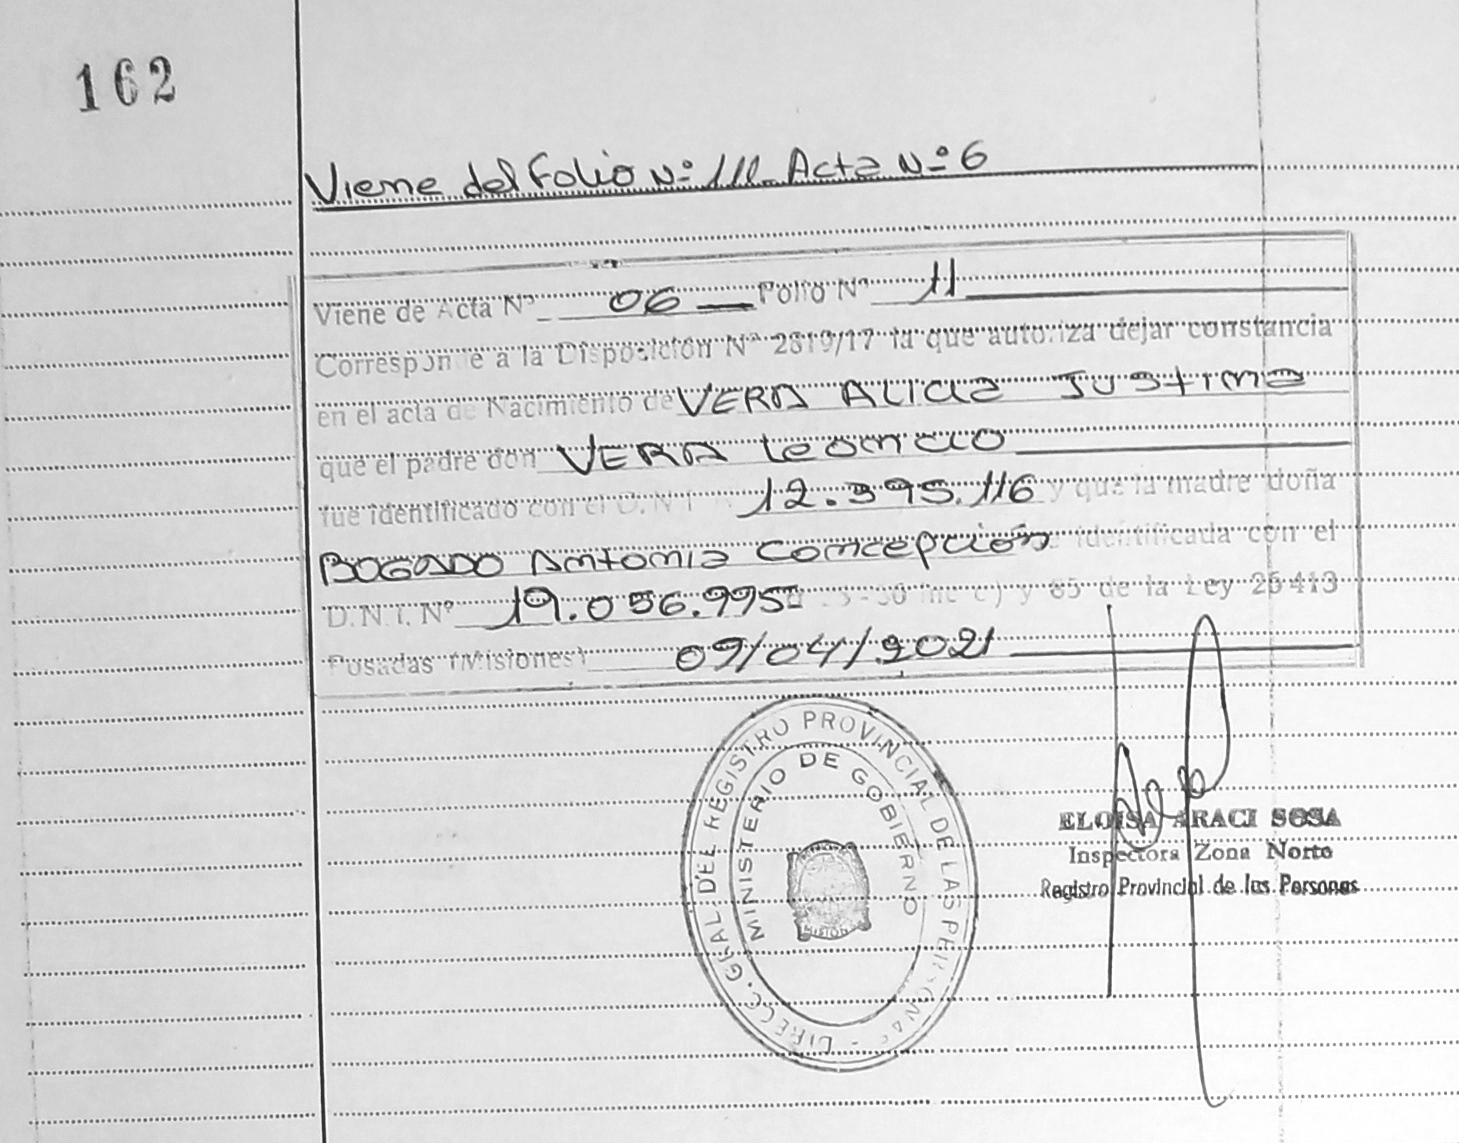 162
Viene del Folio Nº 111 Acta Nº 6
Viene de Acta Nº 06 Folio Nº 11
Corresponde a la Disposición Nº 2819/17 la que autoriza dejar constancia
en el acta de Nacimiento de VERA ALICIA JUSTINA
que el padre don VERA Leoncio
fue identificado con el D.N.I 12.395.116 y que la madre doña
BOGADO Antonia Concepción identificada con el
D.N.I. Nº 19.056.995 inc c) y 85 de la Ley 26413
Posadas (Misiones) 09/04/2021
DIRECC. GRAL. DEL REGISTRO PROVINCIAL DE LAS PERSONAS
MINISTERIO DE GOBIERNO
MISION
ELOISA ARACI SOSA
Inspectora Zona Norte
Registro Provincial de las Personas